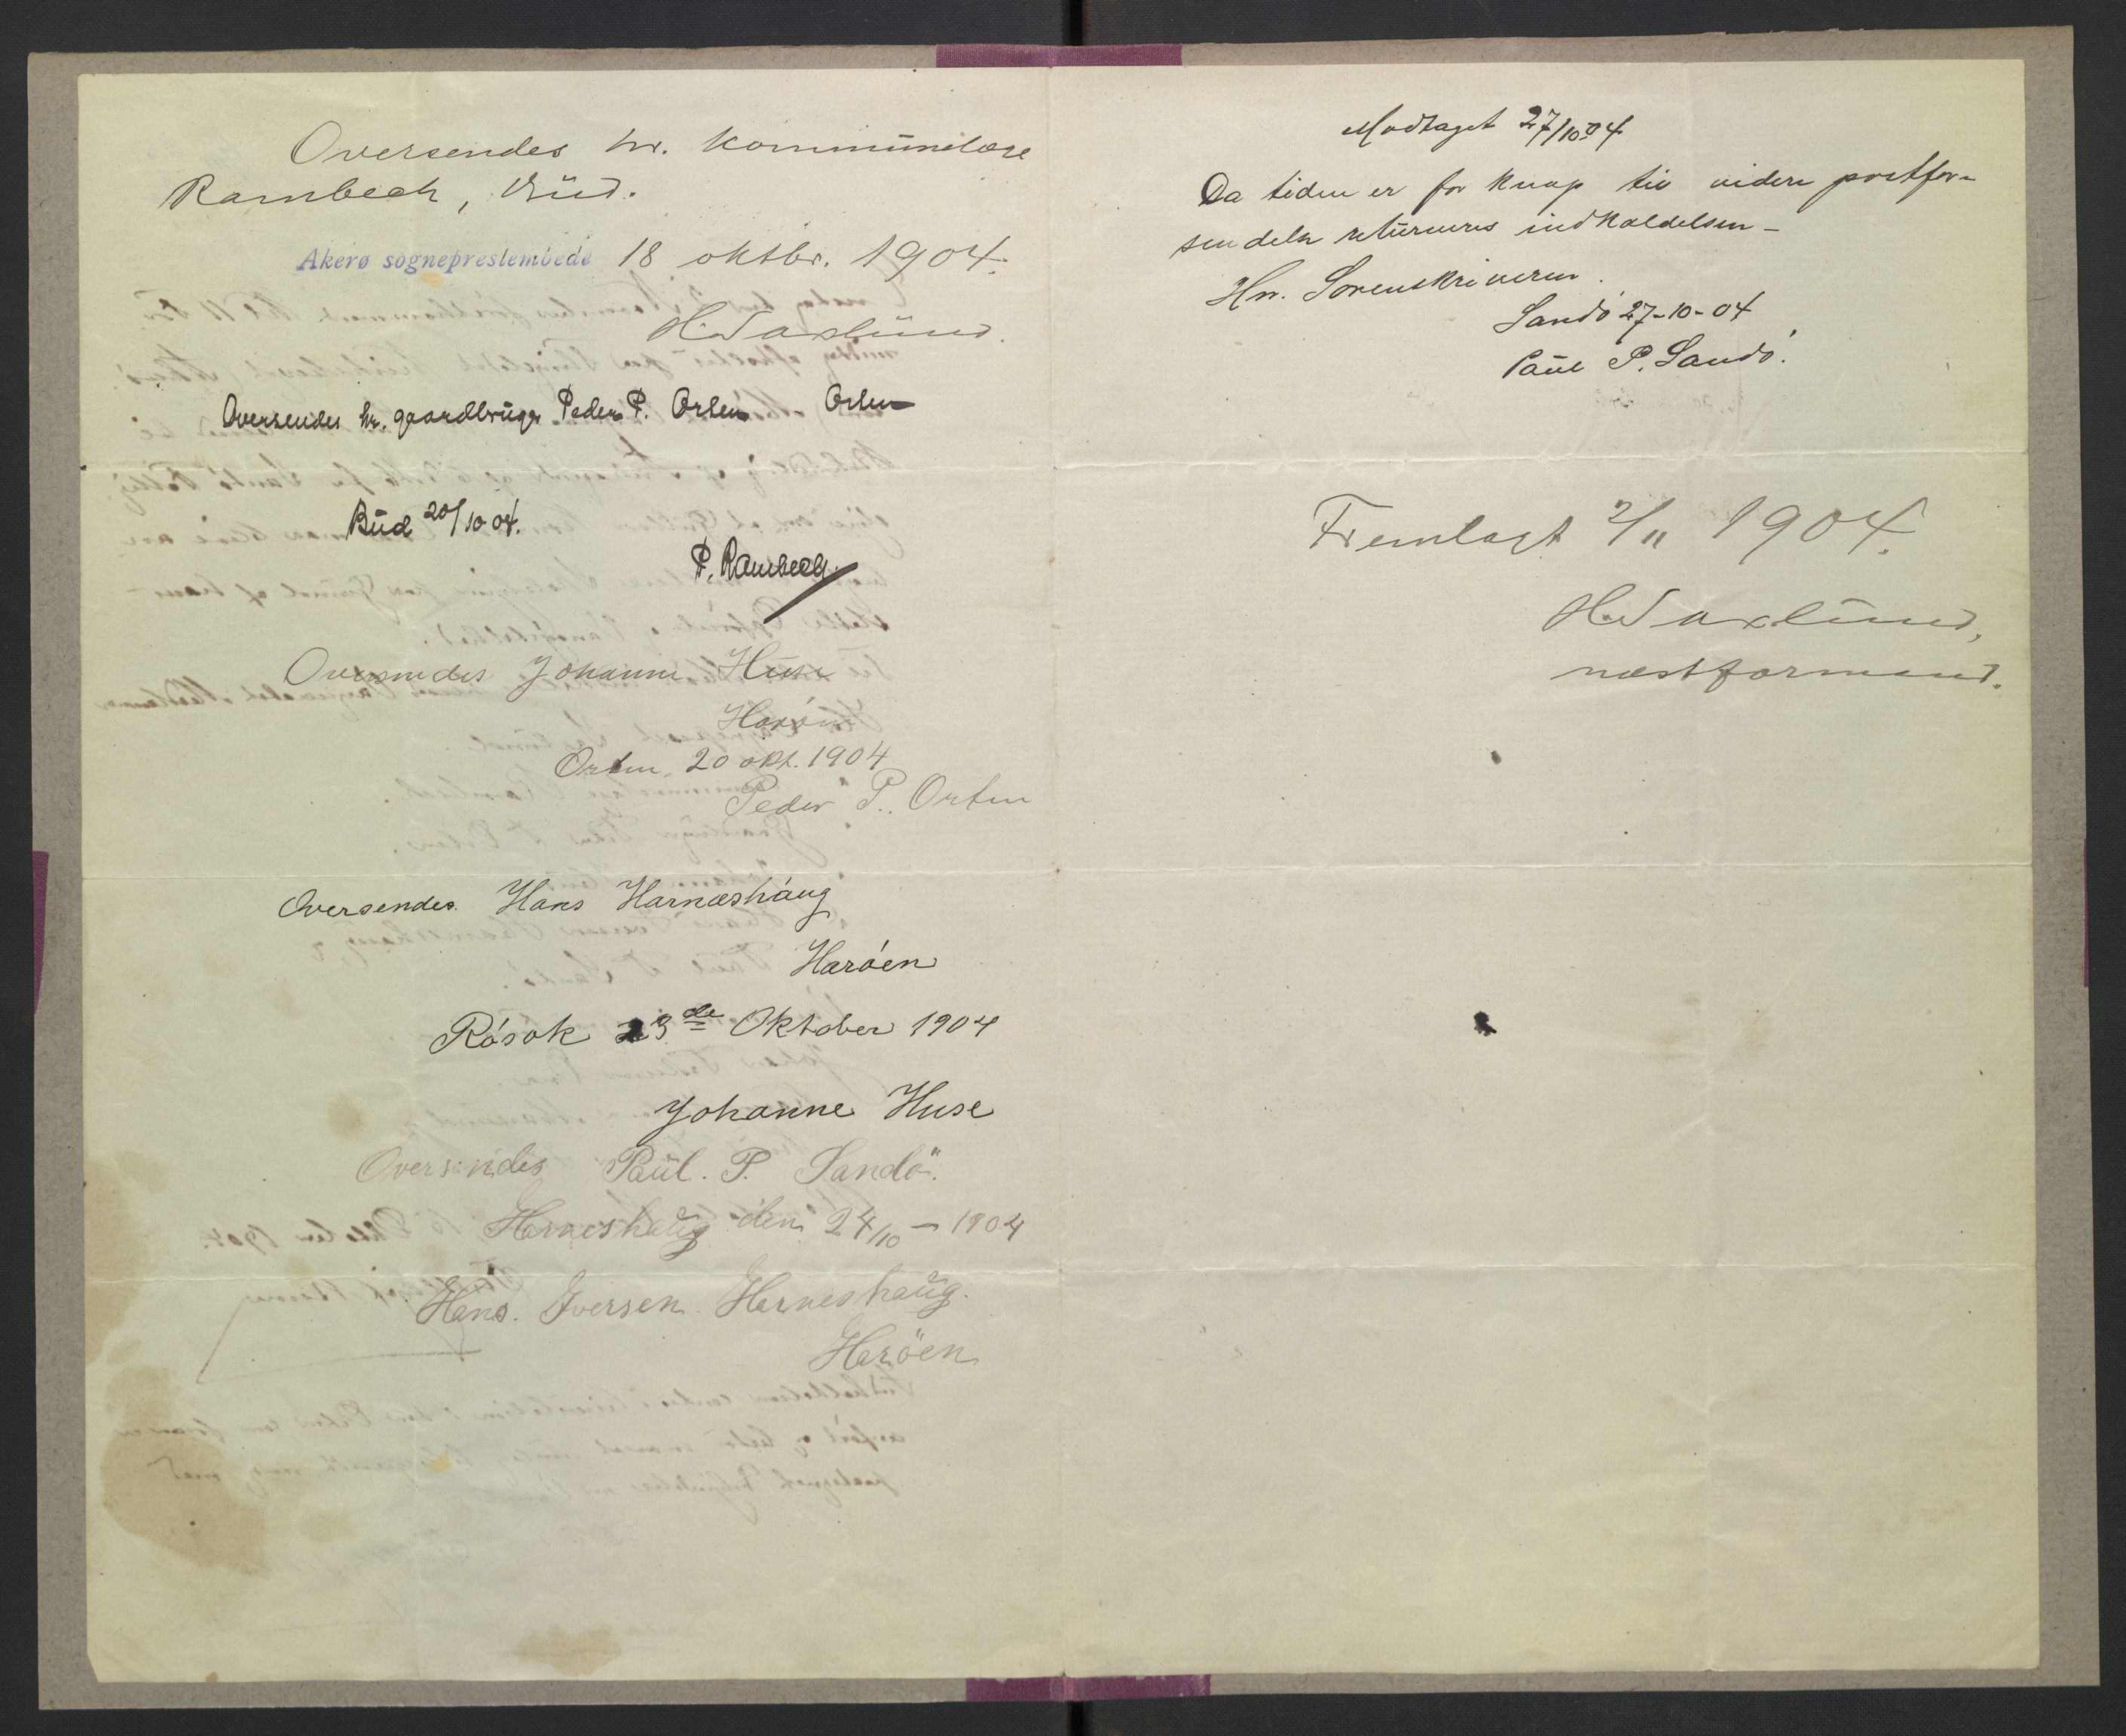 Oversendes hr. kommunelæge
Rambech, Bud.
Akerø sogneprestembede 18 oktbr. 1904.
H. Saxlund.
Oversendes hr. gaardbruger Peder P. Orten Orten
Bud 20/10 04.
P. Rambech
Oversendes Johanne Huse
Harøen
Orten 20 okt. 1904
Peder P. Orten
Oversendes Hans Harnæshaug
Harøen
Røsok 23de Oktober 1904
Johanne Huse
Oversendes Paul. P. Sandö.
Harneshaug den 24/10 – 1904
Hans. Iversen. Harneshaug.
Haröen
Modtaget 27/10 04
Da tiden er for knap til videre postfor-
sendelse returneres indkaldelsen –
Hr. Sorenskriveren.
Sandø 27-10-04
Paul P. Sandø.
Fremlagt 2/11 1904.
H. Saxlund,
næstformand.